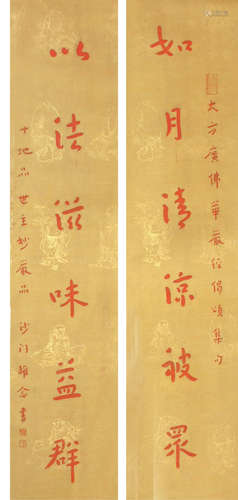 大方廣佛華嚴經偈頌集句
如月清涼被眾
以法滋味益群
十地品 世主妙嚴品 沙门雄念書